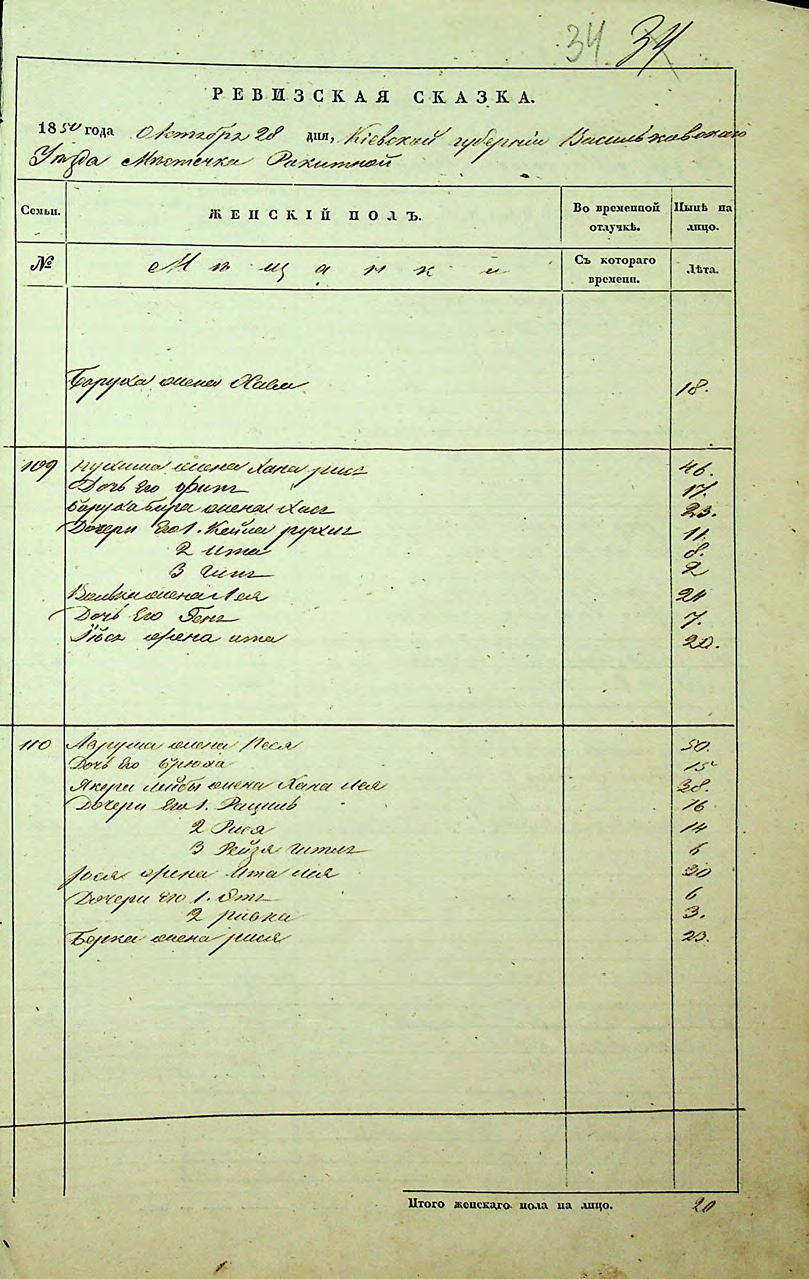 34 34
РЕВИЗСКАЯ СКАЗКА.
1850 года Октября 28 дня, Кіевской губерніи Васильковскаго
Уѣзда Мѣстечка Ракитной
Семьи. ЖЕНСКІЙ ПОЛЪ. Во временной отлучкѣ. Нынѣ на лицо.
№ Мѣщанки Съ котораго времени. Лѣта.
Боруха жена Хава 18.
109 Нухима жена Хана 46.
Дочь Его 17.
жена Хая 23.
Дочери Его 1. Кейла 11.
2 Ита 8.
3 2
жена Лея 24
Дочь Его Геня 7.
жена Ита 20.
110 жена Песя 50.
Дочь Его 15
Лейбы жена Хана Лея 38.
Дочери Его 1. Рациль 16
2 Рися 14
3 Рейзя 6
Іося жена Ита Лея 30
Дочери Его 1. 6
2 Ривка 3.
Борка жена Рися 23.
Итого женскаго пола на лицо. 20